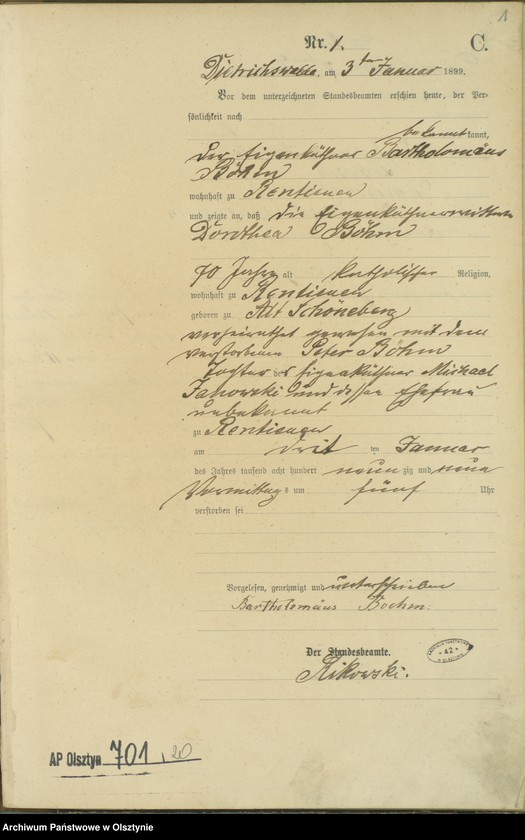 1
Nr. 1.
C.
Dietrichswalde, am 3ten Januar 1899.
Vor dem unterzeichneten Standesbeamten erschien heute, der Per-
sönlichkeit nach
bekannt kannt,
der Eigenkäthner Bartholomäus
Böhm
wohnhaft zu Rentienen
und zeigte an, daß die Eigenkäthnerwittwe
Dorothea Böhm
70 Jahre alt katholischer Religion,
wohnhaft zu Rentienen
geboren zu Alt Schöneberg
verheirathet gewesen mit dem
verstorbenen Peter Böhm
Tochter des Eigenkäthner Michael
Janowski und dessen Ehefrau
unbekannt
zu Rentienen
am drit ten Januar
des Jahres tausend acht hundert neun zig und neun
Vormittags um fünf Uhr
verstorben sei
Vorgelesen, genehmigt und unterschrieben
Bartholomäus Boehm.
Der Standesbeamte.
Rikowski.
42
AP Olsztyn 701, 20
Archiwum Państwowe w Olsztynie